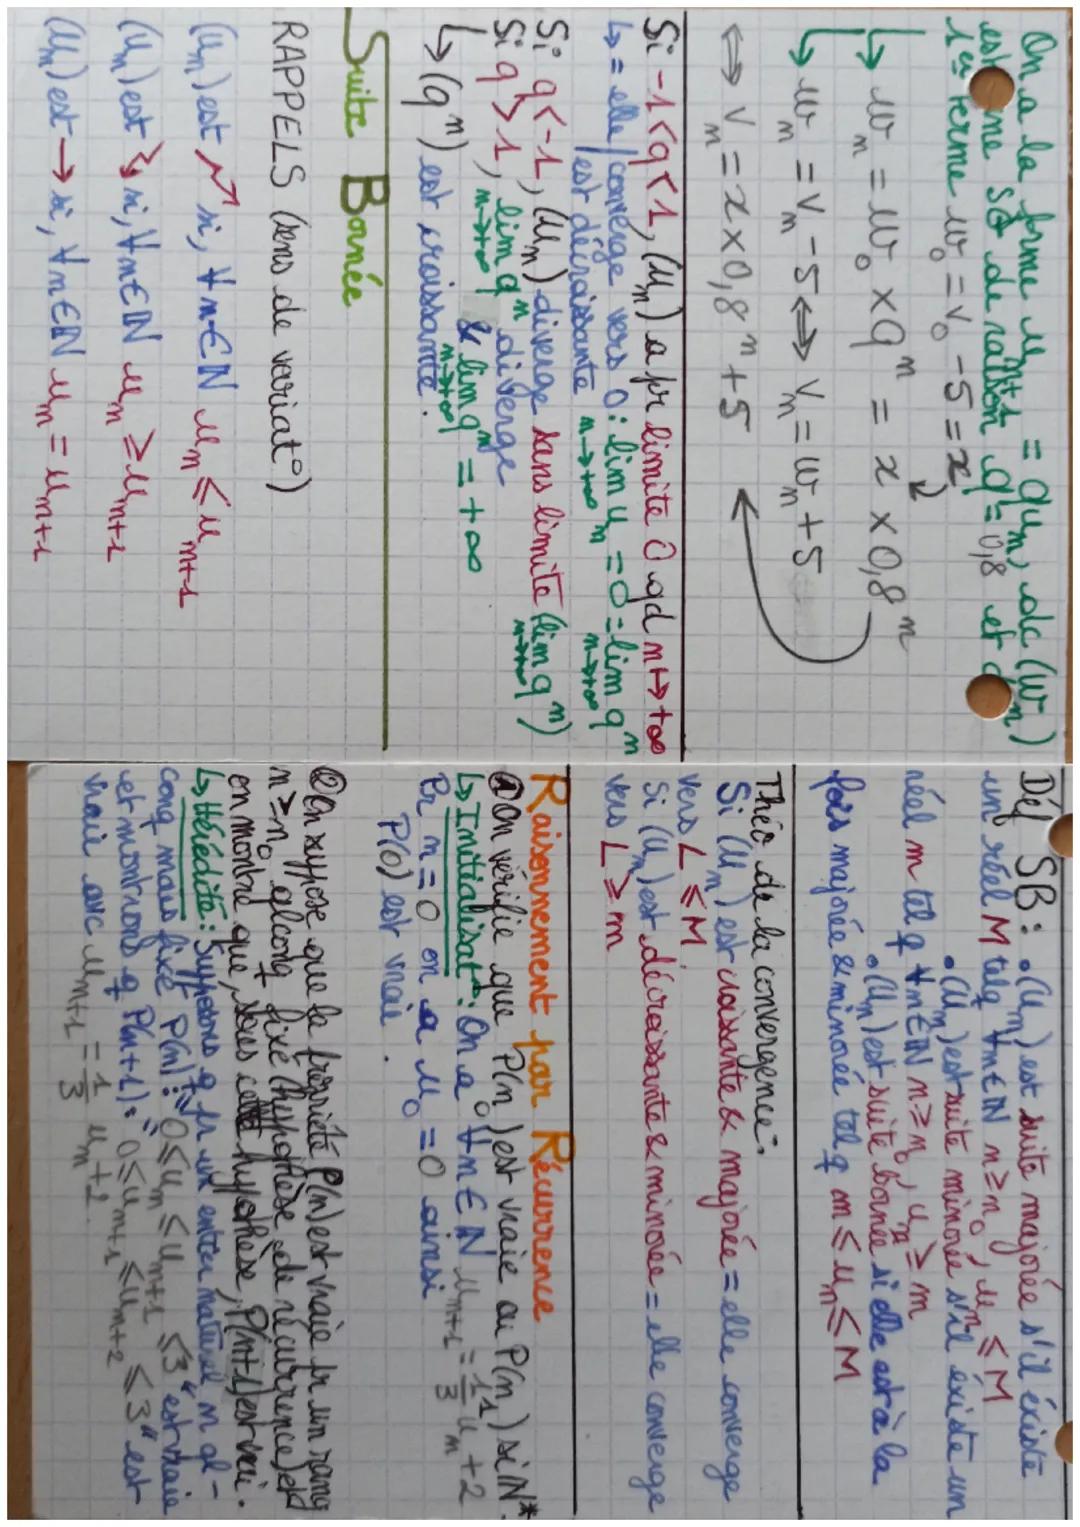 On a la forme u_{n+1} = qu_n, dc (w_n)
est une SG de raison q = 0,8 et d
1er terme w_0 = v_0 - 5 = x
↳ w_n = w_0 × q^n = x × 0,8^n
↳ w_n = v_n - 5 ⇔ v_n = w_n + 5
⇔ v_n = x × 0,8^n + 5
Si -1 < q < 1, (u_n) a pr limite 0 qd n ↦ +∞
↳ = elle converge vers 0 : lim_{n→+∞} u_n = 0 = lim_{n→+∞} q^n
est décroissante
Si q < -1, (u_n) diverge sans limite (lim_{n→+∞} q^n)
Si q > 1, lim_{n→+∞} q^n diverge
& lim_{n→+∞} q^n = +∞
↳ (q^n) est croissante.
Suite Bornée
RAPPELS (sens de variat°)
(u_n) est ↗ si, ∀n∈ℕ u_n ≤ u_{n+1}
(u_n) est ↘ si, ∀n∈ℕ u_n ≥ u_{n+1}
(u_n) est → si, ∀n∈ℕ u_n = u_{n+1}
Déf SB : • (u_n) est suite majorée s'il éxiste
un réel M telq ∀n∈ℕ n≥n_0, u_n ≤ M
• (u_n) est suite minorée s'il éxiste un
réel m tel q ∀n∈ℕ n≥n_0, u_n ≥ m
• (u_n) est suite bornée si elle est à la
fois majorée & minorée tel q m ≤ u_n ≤ M
Théo de la convergence :
Si (u_n) est croissante & majorée = elle converge
vers L ≤ M
Si (u_n) est décroissante & minorée = elle converge
vers L ≥ m
Raisonnement par Récurrence
① On vérifie que P(n_0) est vraie ou P(n_1) si ℕ*
↳ Initialisat° : On a ∀n∈ℕ u_{n+1} = 1/3 u_n + 2
Pr n = 0 on a u_0 = 0 ainsi
P(0) est vraie.
② On suppose que la propriété P(n) est vraie pr un rang
n ≥ n_0 qlconq fixé (hypothèse de récurrence) et
on montre que, sous cette hypothèse, P(n+1) est vrai.
↳ Hérédité : Supposons q pr un entier naturel n ql-
conq mais fixé P(n) : "0 ≤ u_n ≤ u_{n+1} ≤ 3" est vraie
et montrons q P(n+1) : "0 ≤ u_{n+1} ≤ u_{n+2} ≤ 3" est
vraie avc u_{n+1} = 1/3 u_n + 2.